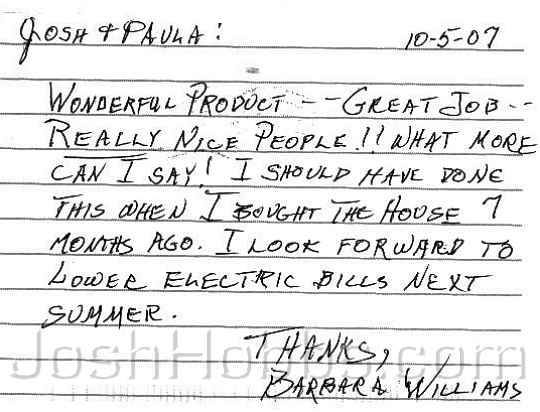 Josh & Paula: 10-5-07
Wonderful Product -- Great Job --
Really Nice People!! What more
can I say! I should have done
this when I bought the House 7
months ago. I look forward to
lower electric bills next
summer.
Thanks,
JoshHobbs.com
Barbara Williams